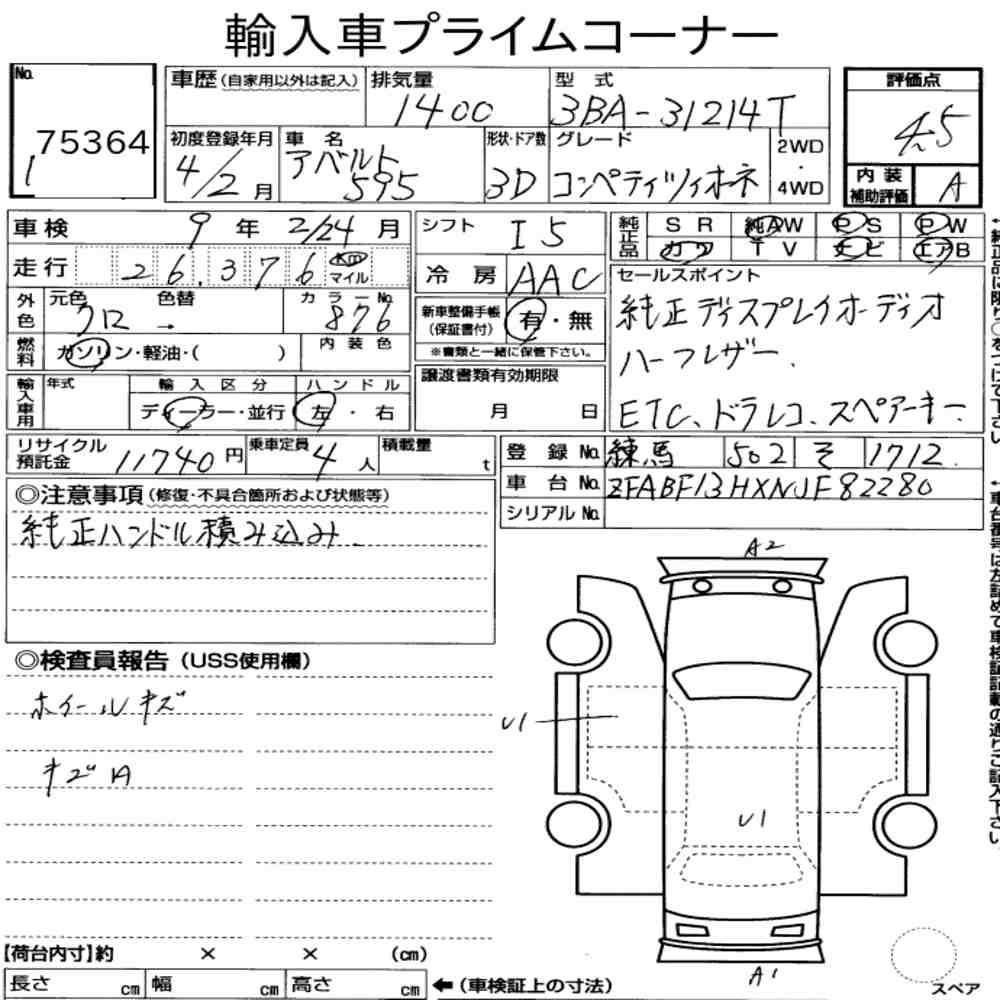 輸入車プライムコーナー
No. 75364
1
車歴(自家用以外は記入)
排気量 1400
型式 3BA-31214T
評価点 4.5
初度登録年月 4/2月
車名 アバルト 595
形状・ドア数 3D
グレード コンペティツィオーネ
2WD・4WD
内装補助評価 A
車検 9年 2/24月
シフト I5
純正品 SR 純AW PS PW
カワ TV ナビ エアB
走行 26,376 Km マイル
冷房 AAC
セールスポイント
純正ディスプレイオーディオ
ハーフレザー.
ETC、ドラレコ、スペアーキー.
外色 元色 クロ 色替 → カラーNo. 876
新車整備手帳(保証書付) 有・無
※書類と一緒に保管下さい。
燃料 ガソリン・軽油・( )
内装色
輸入車用 年式 輸入区分 ディーラー・並行 ハンドル 左・右
譲渡書類有効期限
月 日
リサイクル預託金 11740円
乗車定員 4人
積載量 t
登録No. 練馬 502 そ 1712.
車台No. ZFABF13HXNJF82280
シリアルNo.
◎注意事項(修復・不具合箇所および状態等)
純正ハンドル積み込み.
◎検査員報告(USS使用欄)
ホイールキズ
キズA
A2
U1
U1
A1
【荷台内寸】約 × × (cm)
長さ cm 幅 cm 高さ cm ←(車検証上の寸法)
スペア
←純正品に限り○をつけて下さい
←車台番号は左詰めで車検証記載の通りご記入下さい。